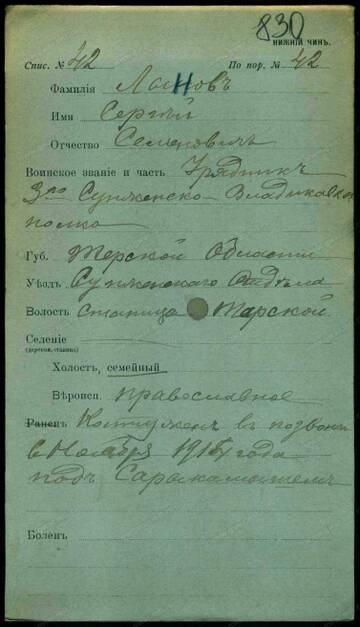 830
НИЖНІЙ ЧИНЪ.
Спис. № 42 По пор. № 42
Фамилія Лановъ
Имя Сергѣй
Отчество Семеновичъ
Воинское званіе и часть Урядникъ
3го Сунженско-Владикавказ
полка
Губ. Терской Области
Уѣздъ Сунженскаго Отдѣла
Волость станица Тарской
Селеніе
(деревня, станица)
Холостъ, семейный
Вѣроисп. православное
Раненъ Контуженъ въ позвон
6 Ноября 1914 года
подъ Сарыкамышемъ
Боленъ